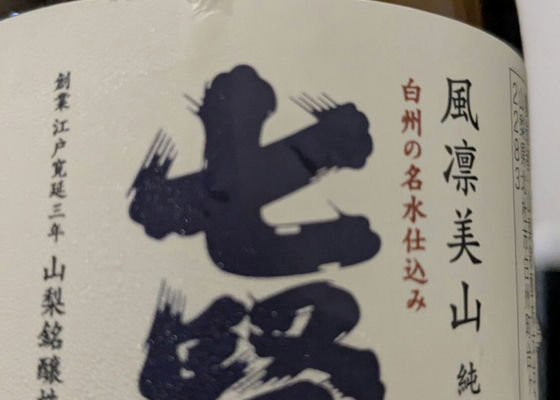 風凛美山 純
白州の名水仕込み
七賢
創業 江戸寛延三年 山梨銘醸株
2283